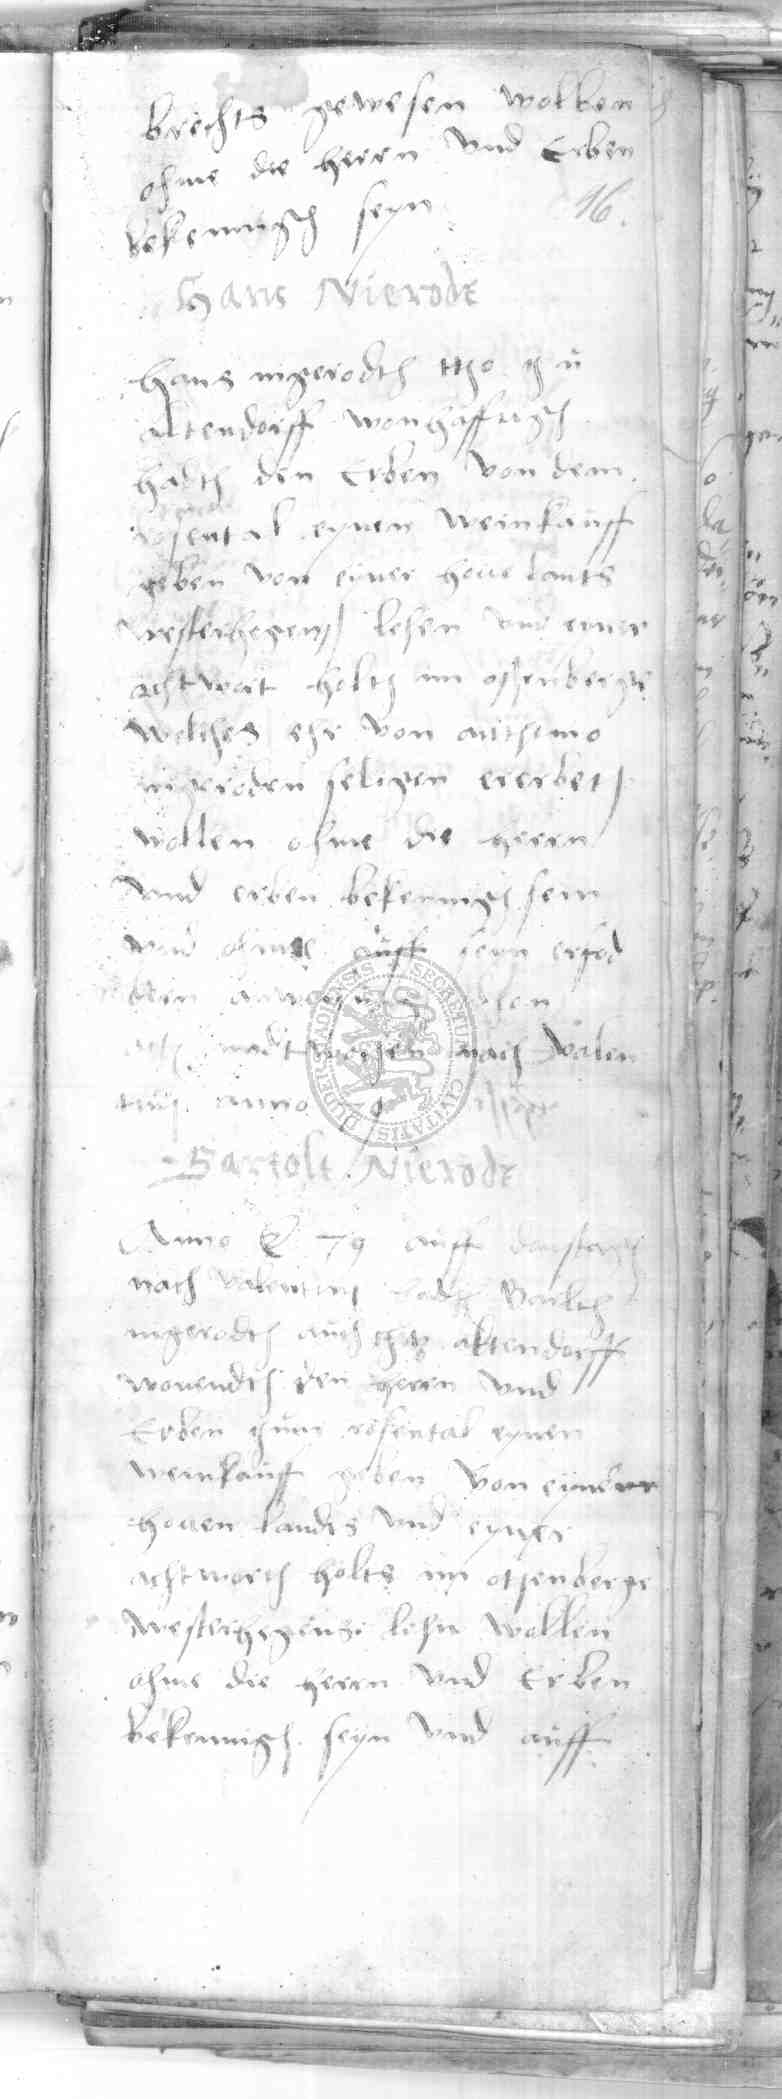 brechts gewesen wollen
ohme die herrn vnd Erben
bekennigh seyn
16.
Hans Nierode
Hans nigerodth itzo zu
altendorff wonhafftigh
hadth den Erben von dem
rosental eynen weinkauff
geben von eyner houe lants
westerhegens lehen vnd eyner
achtwart holtz im ossenberge
welches ehr von anthimo
nigeroden seligen ererbeth
wollen ohme die herrn
vnd erben bekennigh sein
vnd ohme auff seyn erfod
den
nach valen
tini anno 79
Bartolt Nierode
Anno 79 auff donstagh
nach valentini hadth Bartelth
nigerodth auch itz altendorff
wonendth den herrn vnd
Erben zum rosental eynen
weinkauff geben von eynder
houen landes vnd eyner
achtworth holts im otzenberge
westerhegens lehn wollen
ohme die herrn vnd Erben
bekennigh seyn vnd auff
SECRETUM CIVITATIS DUDERSTADIENSIS